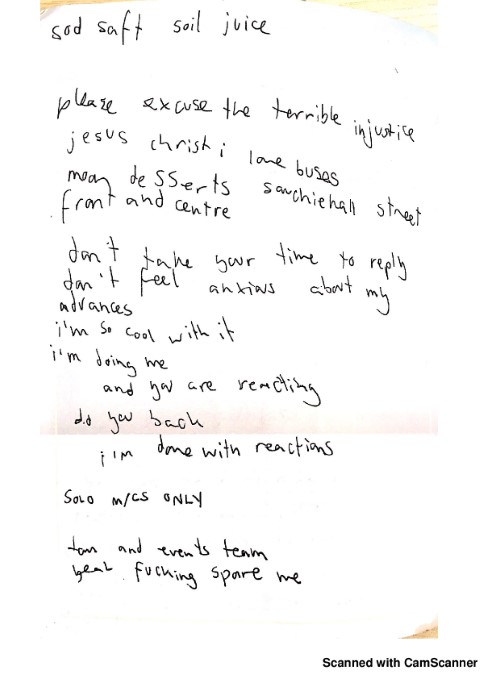 sod saft soil juice
please excuse the terrible injustice
jesus christ i love buses
moan desserts sauchiehall street
front and centre
don't take your time to reply
don't feel anxious about my
advances
i'm so cool with it
i'm doing me
and you are reacting
do you back
i'm done with reactions
SOLO M/CS ONLY
tom and events team
yeah fucking spare me
Scanned with CamScanner